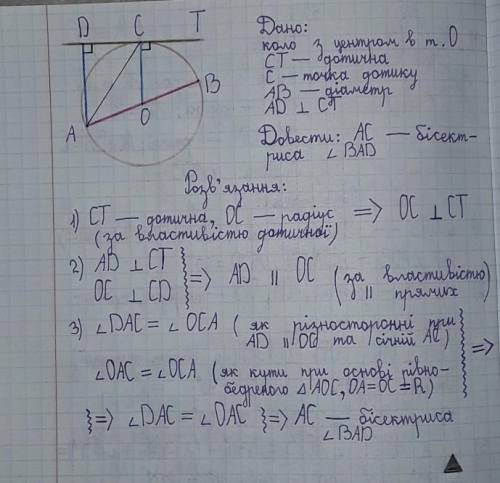 D C T
B
O
A
Дано:
коло з центром в т. О
СТ — дотична
С — точка дотику
АВ — діаметр
AD ⊥ CT
Довести: АС — бісект-
риса ∠BAD
Розв'язання:
1) СТ — дотична, ОС — радіус => ОС ⊥ СТ
(за властивістю дотичної)
2) AD ⊥ CT
OC ⊥ CD } => AD || OC (за властивістю
|| прямих)
3) ∠DAC = ∠OCA (як різносторонні при
AD || OC та січній AC)
=>
∠OAC = ∠OCA (як кути при основі рівно-
бедреного △AOC, OA=OC=R)
} => ∠DAC = ∠OAC } => AC — бісектриса
∠BAD